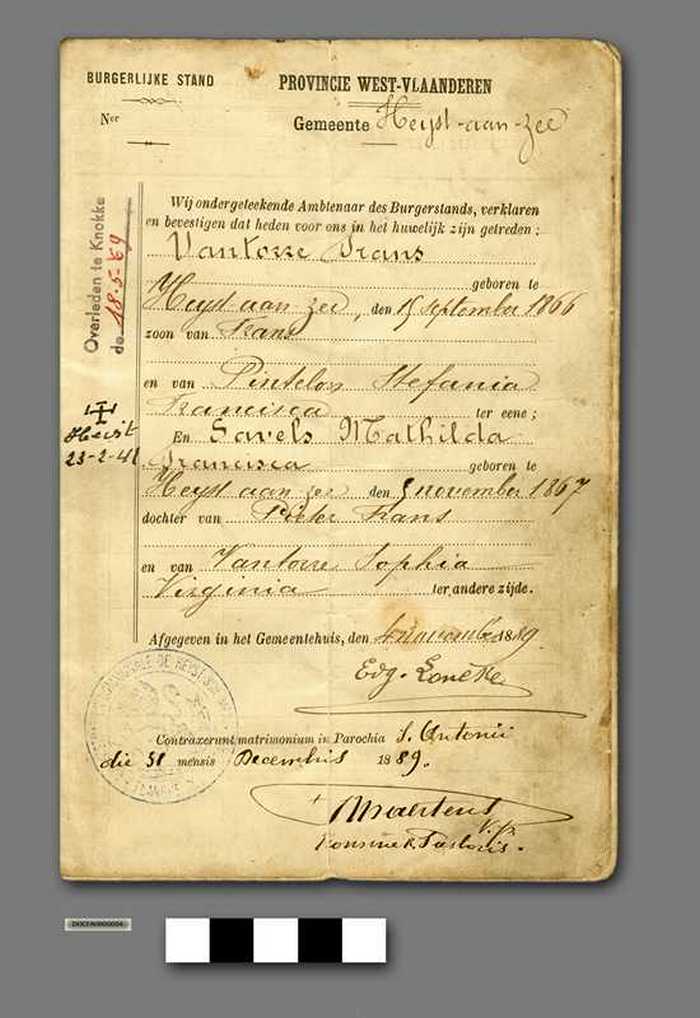 BURGERLIJKE STAND
PROVINCIE WEST-VLAANDEREN
Ner
Gemeente Heyst-aan-zee
Wij ondergeteekende Ambtenaar des Burgerstands, verklaren
en bevestigen dat heden voor ons in het huwelijk zijn getreden :
Vantorre Frans
geboren te
Heyst aan zee, den 15 september 1866
zoon van Frans
en van Pintelon Stefania
Francisca ter eene ;
En Savels Mathilda
Francisca geboren te
Heyst aan zee den 5 november 1867
dochter van Pieter Frans
en van Vantorre Sophia
Virginia ter andere zijde.
Overleden te Knokke
de 18-5-69
Heist
23-2-41
Afgegeven in het Gemeentehuis, den 4 november 1889.
Contraxerunt matrimonium in Parochia S. Antonii
die 31 mensis Decembris 1889.
Maertens